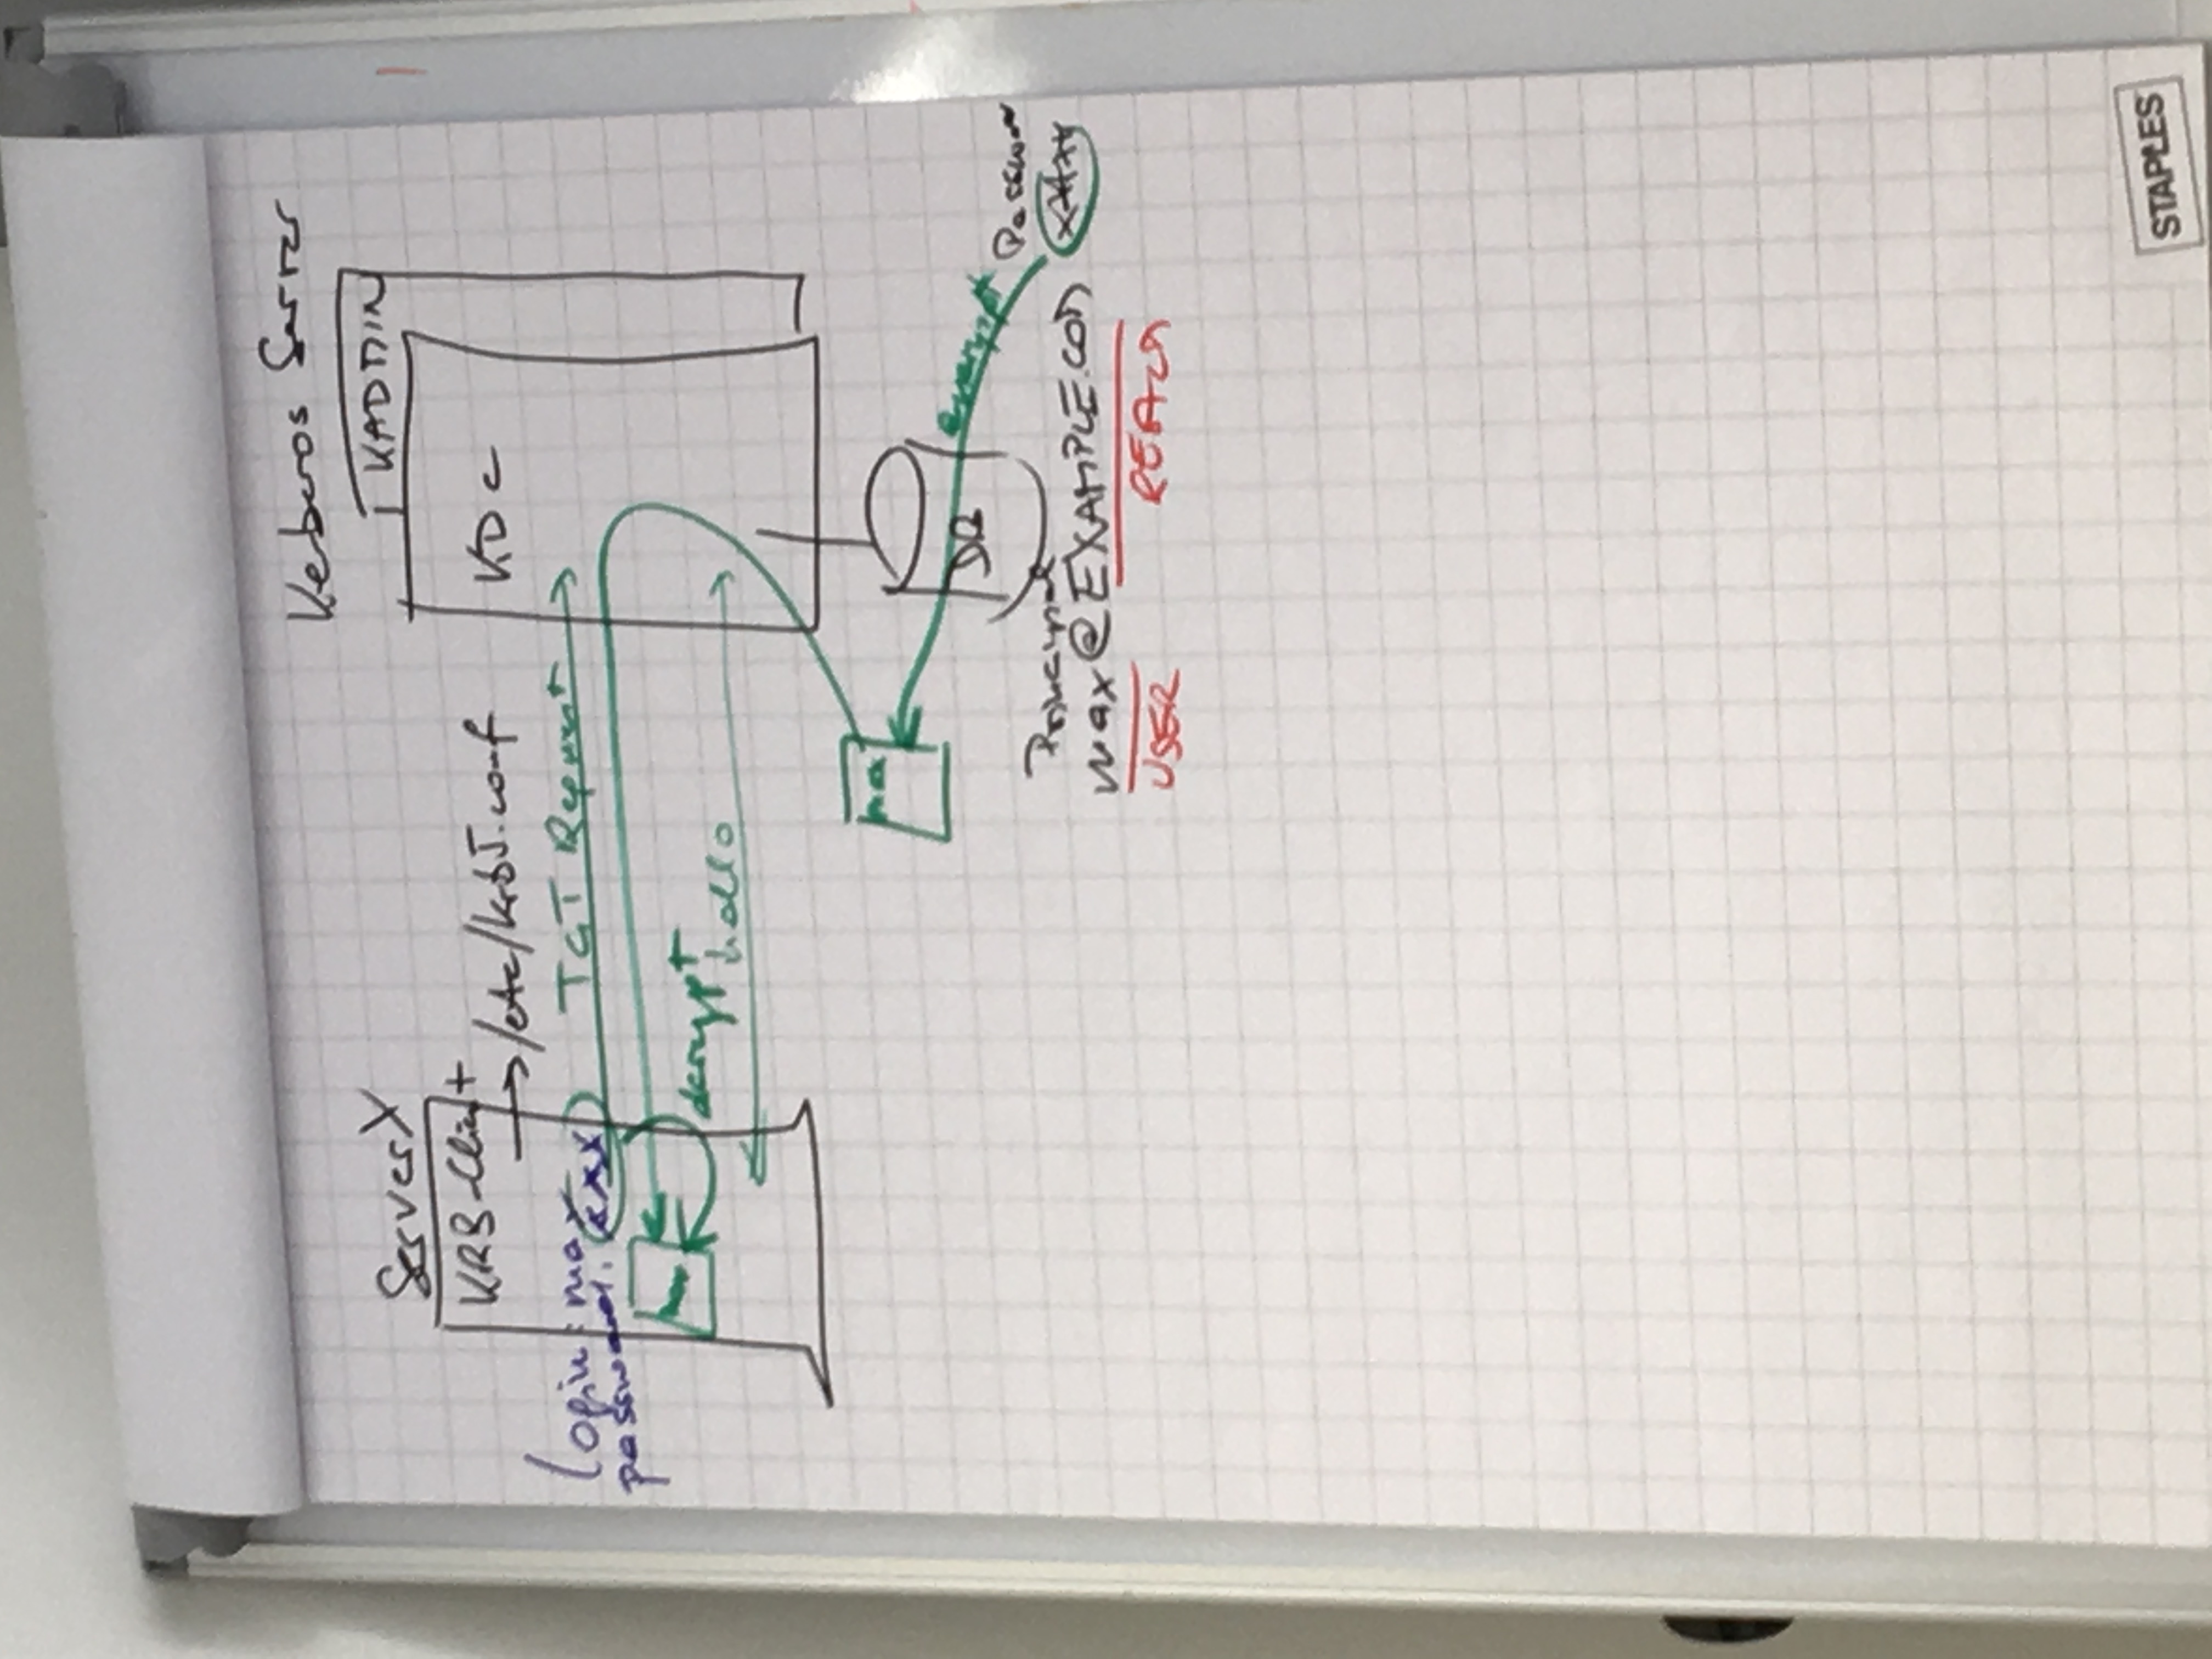 Kerberos Server
KADMIN
ServerX
KRB-Client
→ /etc/krb5.conf
KDC
Login: max
password: xxx
TGT Request
decrypt
hallo
max
DB
encrypt
Passwor
xxxxx
Principal
max@EXAMPLE.COM
USER
REALM
STAPLES